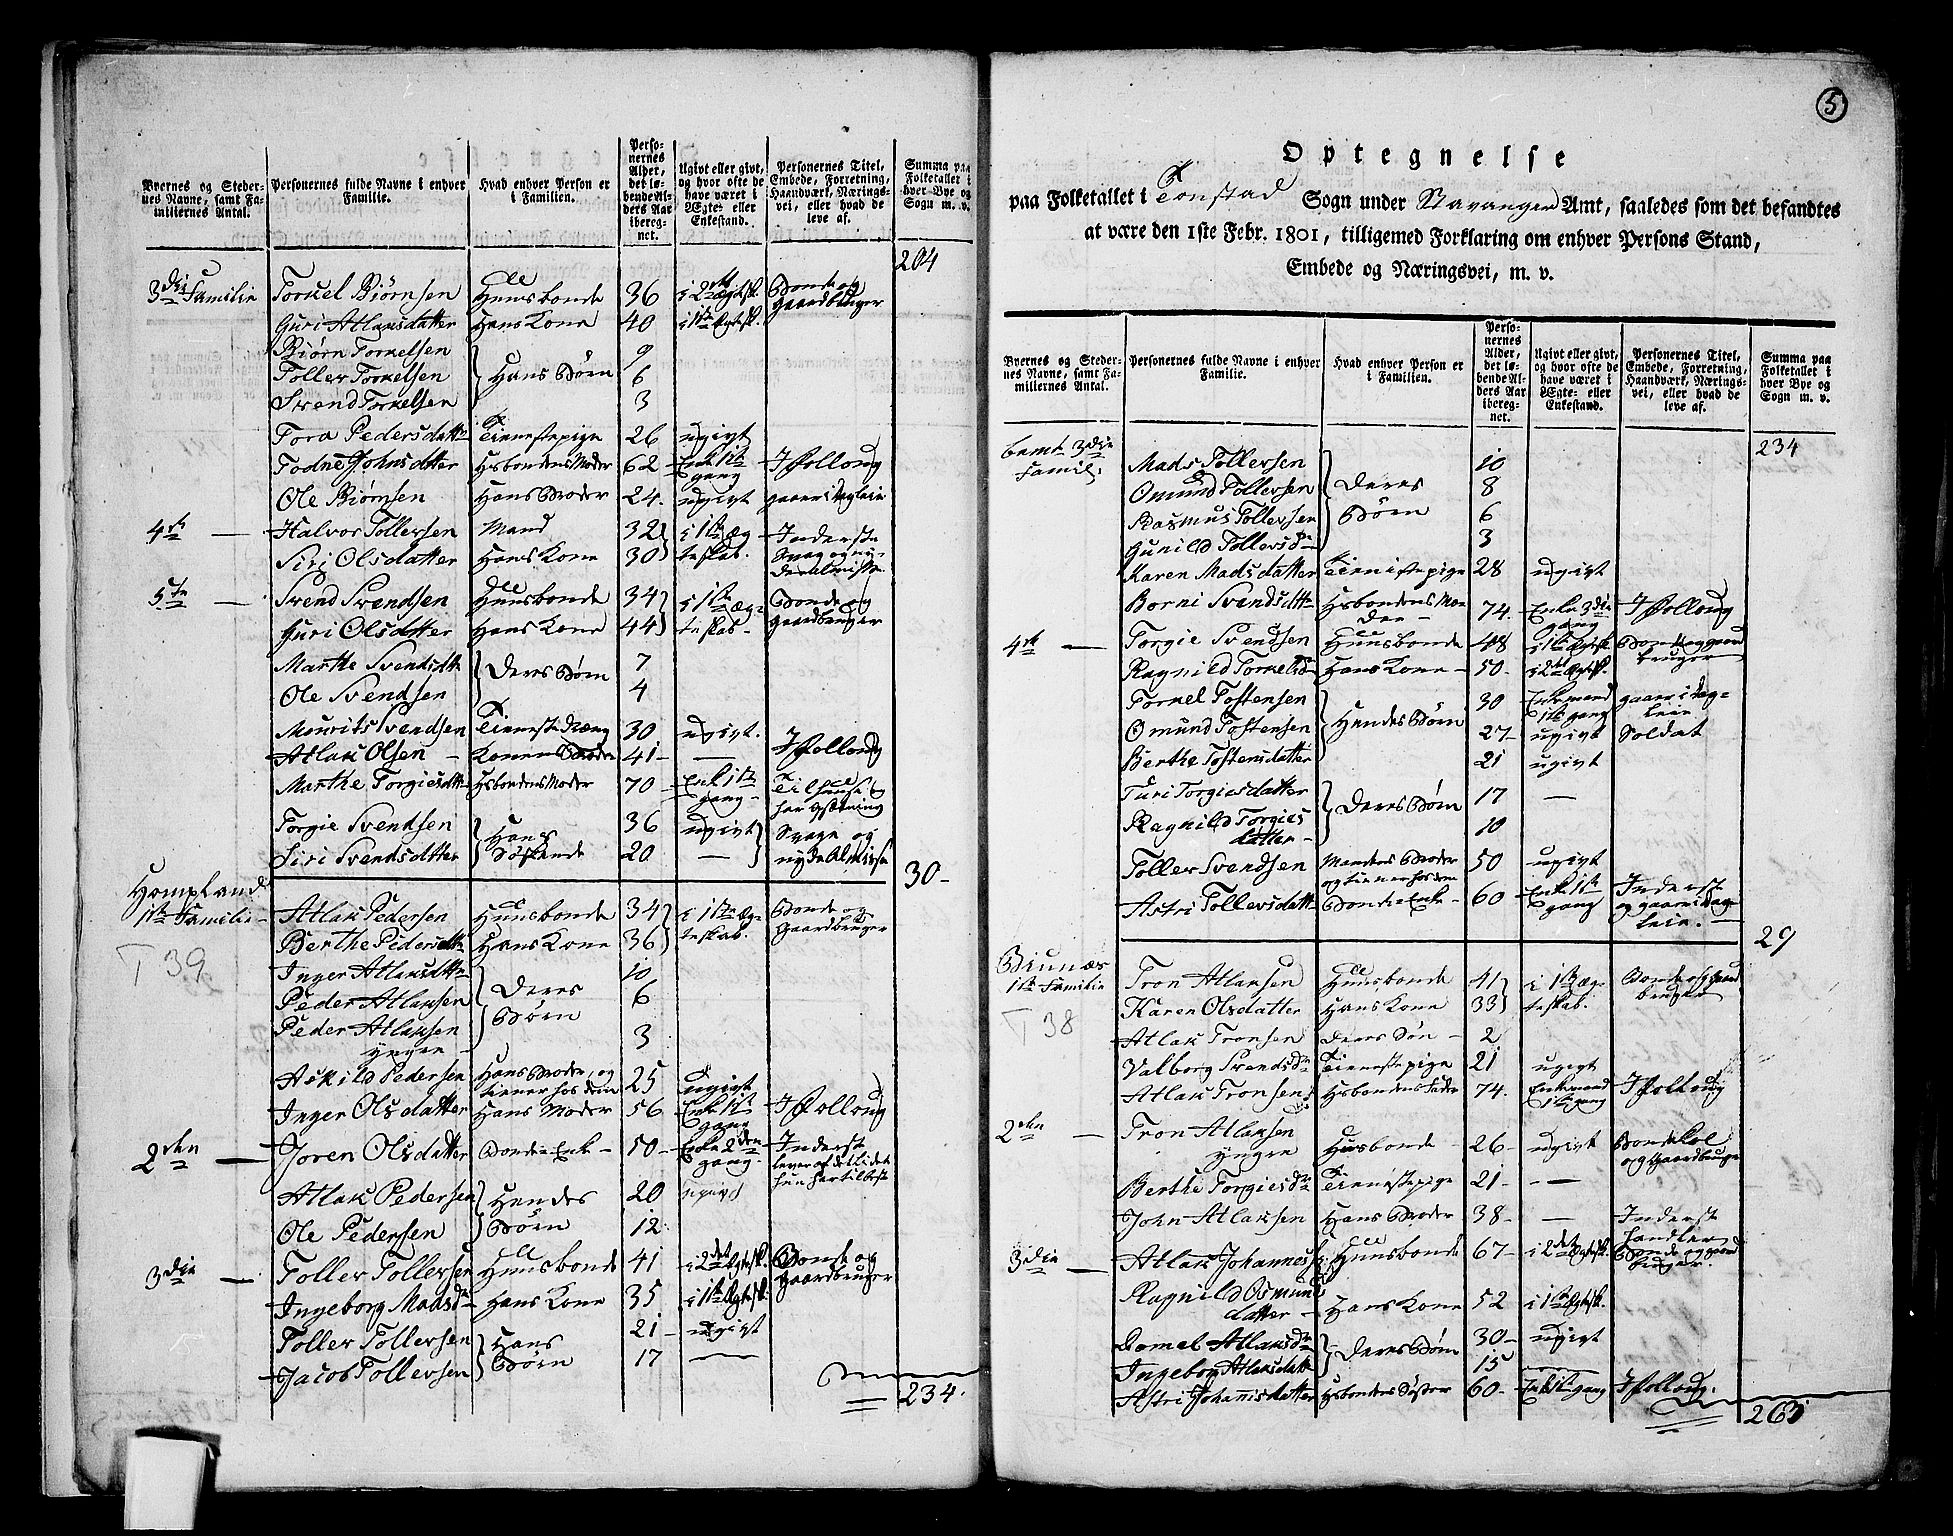 Byernes og Steder-
nes Navne, samt Fa-
miliernes Antal.
Personernes fulde Navne i enhver
Familie.
Hvad enhver Person er
i Familien.
Perso-
nernes
Alder,
det lø-
bende Al-
ders Aar
ibereg-
net.
Ugivt eller givt,
og hvor ofte de
have været i
Ægte- eller
Enkestand.
Personernes Titel,
Embede, Forretning,
Haandværk, Nærings-
vei, eller hvad de
leve af.
Summa paa
Folketallet i
hver Bye og
Sogn m. v.
204
3die Familie Torkel Biørnsen Huusbonde 36 i 2det Ægtesk. Bonde og
Gaardbruger
Guri Atlaksdatter Hans Kone 40 i 1ste Ægtesk.
Biørn Torkelsen 9
Toller Torkelsen Hans Børn 6
Svend Torkelsen 3
Tora Pedersdattr Tienestepige 26 ugivt
Todne Johnsdatter Hsbondens Moder 62 Enke 1ste
gang J Folloug
Ole Biørnsen Hans Broder 24 ugivt gaaer i Dagleie
4de — Halvor Tollersen Mand 32 i 1ste Æg- Inderste
Siri Olsdatter Hans Kone 30 teskab. Svag og ny-
der Almisse
5te — Svend Svendsen Huusbonde 34 i 1ste Æg- Bonde og
Guri Olsdatter Hans Kone 44 teskab Gaardbruger
Marthe Svendsdtr Deres Børn 7
Ole Svendsen 4
Mourits Svendsen Tieneste Dræng 30 ugivt.
Atlak Olsen Konens Broder 41 — J Folloug
Marthe Torgiesdattr Hsbondens Moder 70 Enke 1ste
gang Til Huuse og
har opfostring
Torgie Svendsen Hans 36 ugivt Svage og
Siri Svendsdatter Søskende 20 — nyde Almisse
30
Hompland
1ste Familie Atlak Pedersen Huusbonde 34 i 1ste Æg- Bonde og
Berthe Pedersdattr Hans Kone 36 teskab. Gaardbruger
T 39
Inger Atlaksdattr 10
Peder Atlaksen Deres 6
Peder Atlaksen Børn
yngre 3
Askild Pedersen Hans Broder, og
tiener hos dem 25 ugivt
Inger Olsdatter Hans Moder 56 Enke 1ste
gang J Folloug
2den — Joren Olsdatter Bonde Enke 50 Enke 2den
gang Inderst
lever af det lidet
hun har tilbeste
Atlak Pedersen Hendes 20 ugivt
Ole Pedersen Børn 12
3die — Toller Tollersen Huusbonde 41 i 2det Ægtesk. Bonde og
Gaardbruger
Ingeborg Madsdr Hans Kone 35 i 1ste Ægtesk.
Toller Tollersen Hans 21 ugivt
Jacob Tollersen Børn 17 —
234.
5
Optegnelse
paa Folketallet i Tonstad Sogn under Stavanger Amt, saaledes som det befandtes
at være den 1ste Febr. 1801, tilligemed Forklaring om enhver Persons Stand,
Embede og Næringsvei, m. v.
Byernes og Steder-
nes Navne, samt Fa-
miliernes Antal.
Personernes fulde Navne i enhver
Familie.
Hvad enhver Person er
i Familien.
Perso-
nernes
Alder,
det lø-
bende Al-
ders Aar
ibereg-
net.
Ugivt eller givt,
og hvor ofte de
have været i
Ægte- eller
Enkestand.
Personernes Titel,
Embede, Forretning,
Haandværk, Nærings-
vei, eller hvad de
leve af.
Summa paa
Folketallet i
hver Bye og
Sogn m. v.
234
bemt 3die
Famil: Mads Tollersen 10
Omund Tollersen Deres 8
Rasmus Tollersen Børn 6
Gunild Tollersdr 3
Karen Madsdatter Tienistepige 28 ugivt
Borni Svendsdtr Hsbondens Mo-
der 74. Enke 3die
gang J Folloug
4de — Torgie Svendsen Huusbonde 48 i 1ste Ægtesk. Bonde og gaard
bruger
Ragnild Torkelsd Hans Kone 50 i 2det Ægtesk.
Torkel Tostensen 30 Enkemand
1ste gang gaaer i Dag-
leie
Omund Tostensen Hendes Børn 27 ugivt Soldat
Berthe Tostensdatter 21 ugivt
Turi Torgiesdatter 17 —
Ragnild Torgies
datter Deres Børn 10
Toller Svendsen Mandens Broder
og tiener hos dem 50 ugivt
Astri Tollersdattr Bonde Enke 60 Enke 1ste
gang Inderst
og gaaer i Dag-
leie.
29
Biunæs
1ste Familie Tron Atlaksen Huusbonde 41 i 1ste Æg- Bonde og Gaard
bruger
Karen Olsdatter Hans Kone 33 teskab.
T 38
Atlak Tronsen Deres Søn 2
Valborg Svendsdr Tienestepige 21 ugivt
Atlak Tronsen Hsbondens Fader 74. Enkemand
1ste gang J Folloug
2den — Tron Atlaksen
yngre Husbonde 26 ugivt Bonde Kol
og Gaardbruger
Berthe Torgiesdr Tienistepige 21 —
John Atlaksen Hans Broder 38 — Inderst
handler
3die — Atlak Johanness: Huusbonde 67 i 2det Ægtesk. Bonde og gaard
bruger.
Ragnild Osmund
datter Hans Kone 52 i 1ste Ægtesk.
Domel Atlaksdr Deres Børn 30 ugivt
Ingeborg Atlaksdatr 15 —
Astri Johannisdatter Hsbondens Søster 60 Enke 1ste gang J Folloug.
263